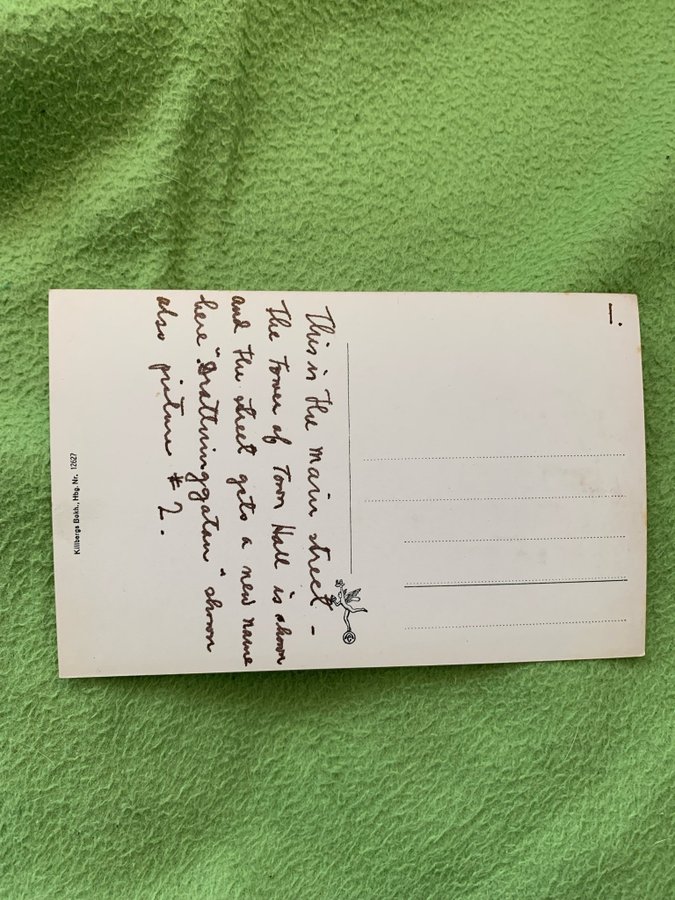 1
This is the main street -
The tower of Town Hall is shown
and the street gets a new name
here "Drattninggatan" shown
also picture # 2.
Killbergs Bokh., Hbg. Nr. 12627